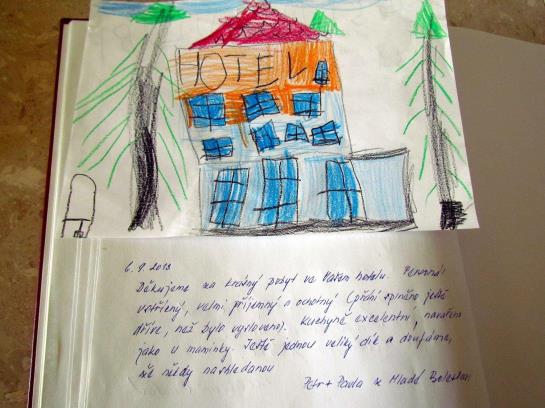 HOTEL
6. 9. 2013
Děkujeme za krásný pobyt ve Vašem hotelu. Personál
vstřícný, velmi příjemný a ochotný (přání splněno ještě
dříve, než bylo vysloveno). Kuchyně excelentní, navařeno
jako u maminky. Ještě jednou veliký dík a doufáme,
že někdy nashledanou
Petr + Pavla z Mladé Boleslavi